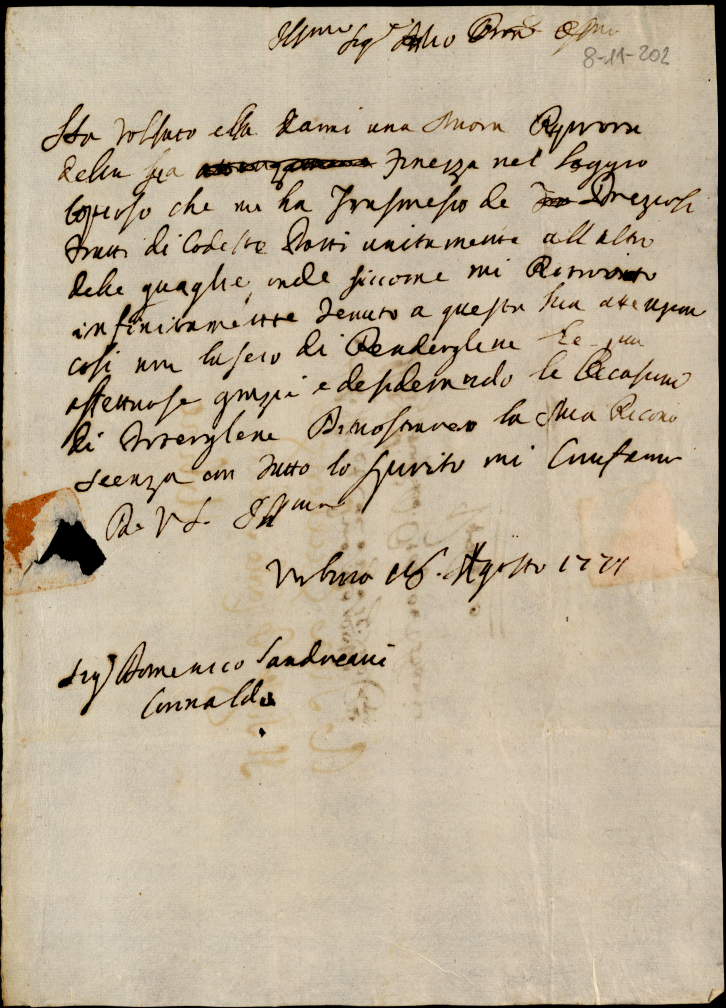 Ill.mo Sig.r Padron
8-11-202
Ha voluto ella darmi una nuova Riprova
della sua finezza nel saggio
copioso che mi ha trasmesso de Preziosi
frutti di codeste Parti unitamente all altro
delle quaglie, onde siccome mi Ritrovo
infinitamente tenuto a questa sua attenzion
cosi non lascio di Renderglene le più
affettuose grazie e desiderando le Occasioni
di Poterglene Dimostrare la mia Ricono
scenza con tutto lo spirito mi Confermo
Di V S. Ill.ma
Urbino 16. Agosto 1771
Sig.r Domenico Landreani
Corinaldo